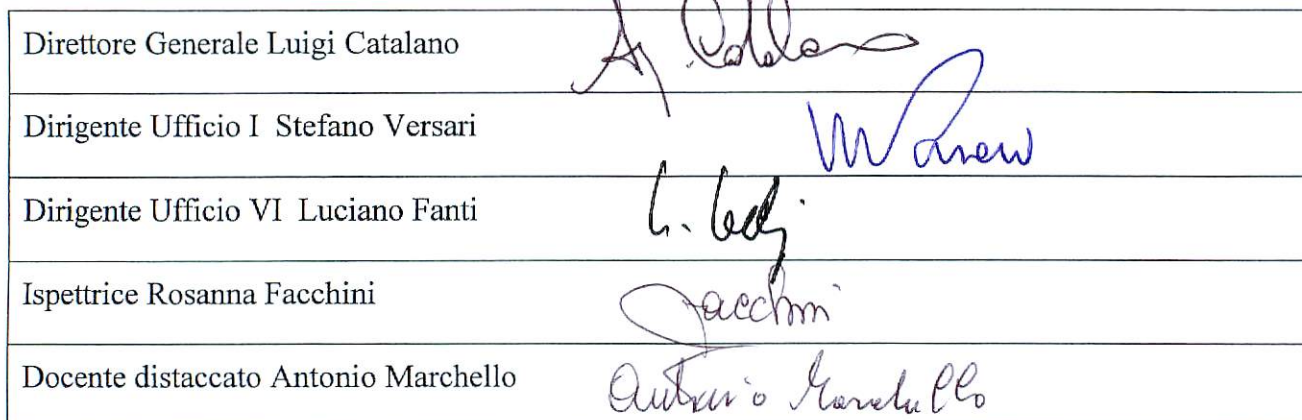 Direttore Generale Luigi Catalano
Dirigente Ufficio I Stefano Versari
Dirigente Ufficio VI Luciano Fanti
Ispettrice Rosanna Facchini Facchini
Docente distaccato Antonio Marchello Antonio Marchello